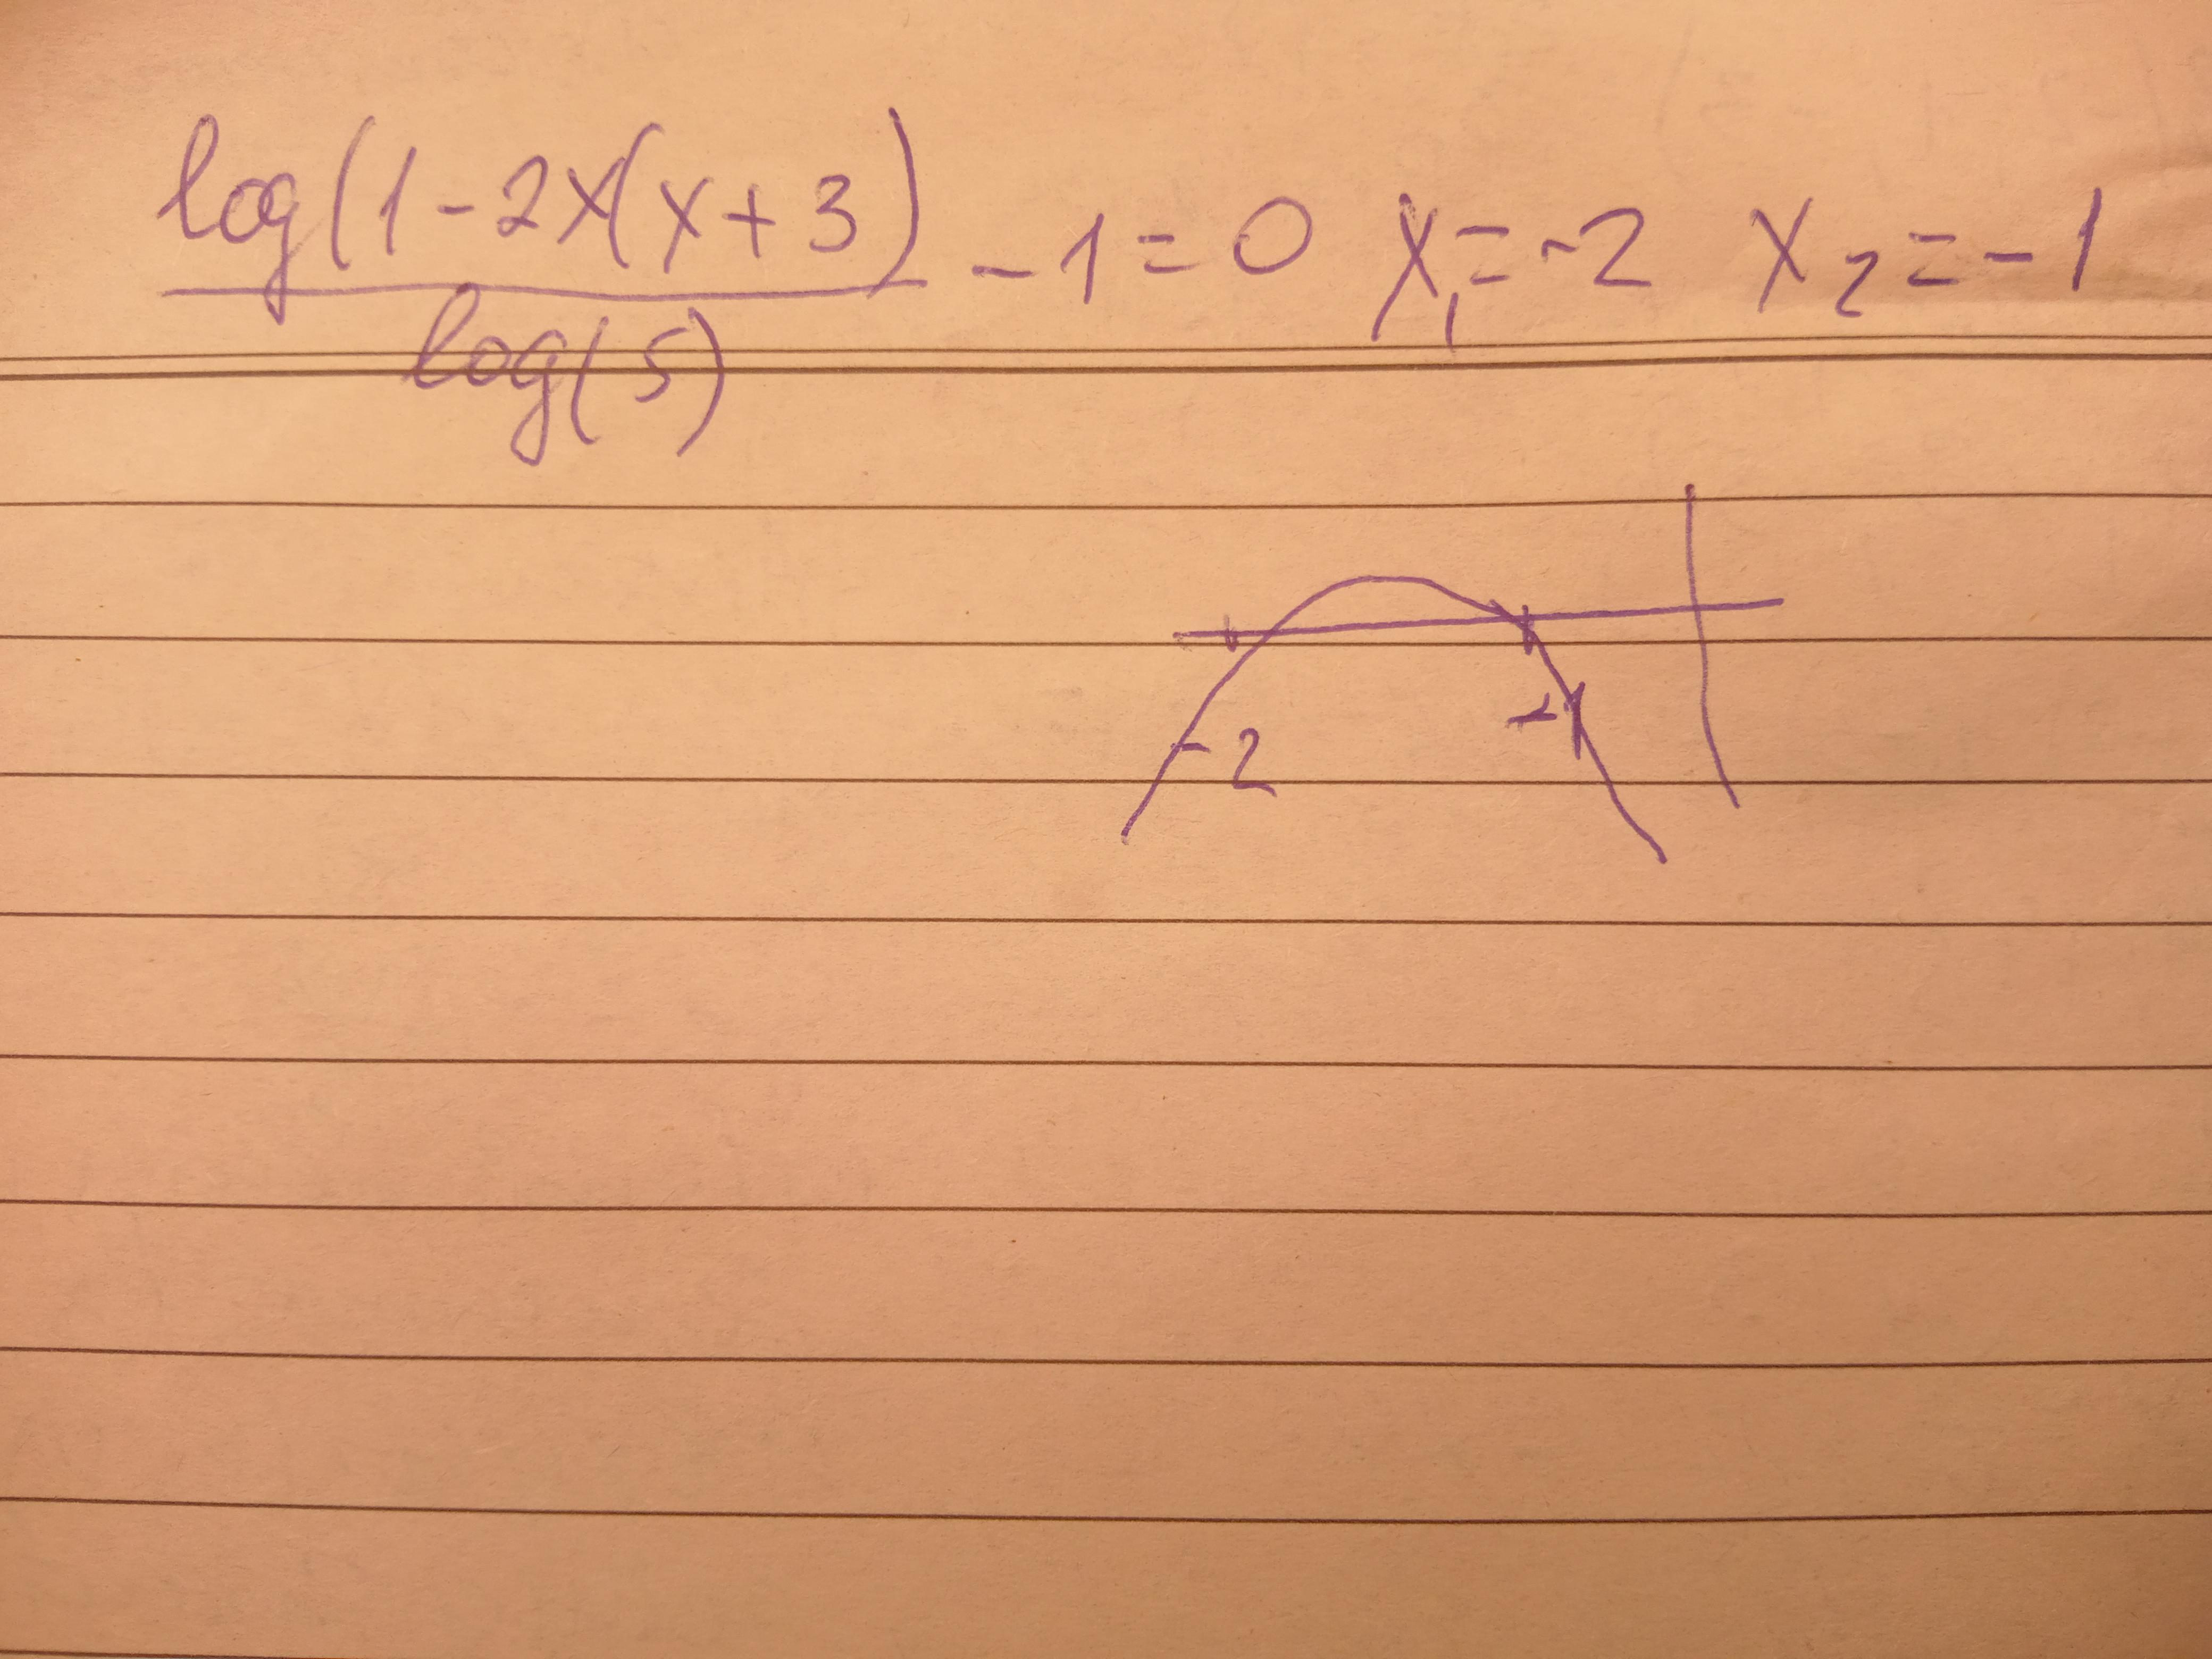 log(1-2x(x+3)
log(5)
-1=0 x₁=-2 x₂=-1
-2
-1